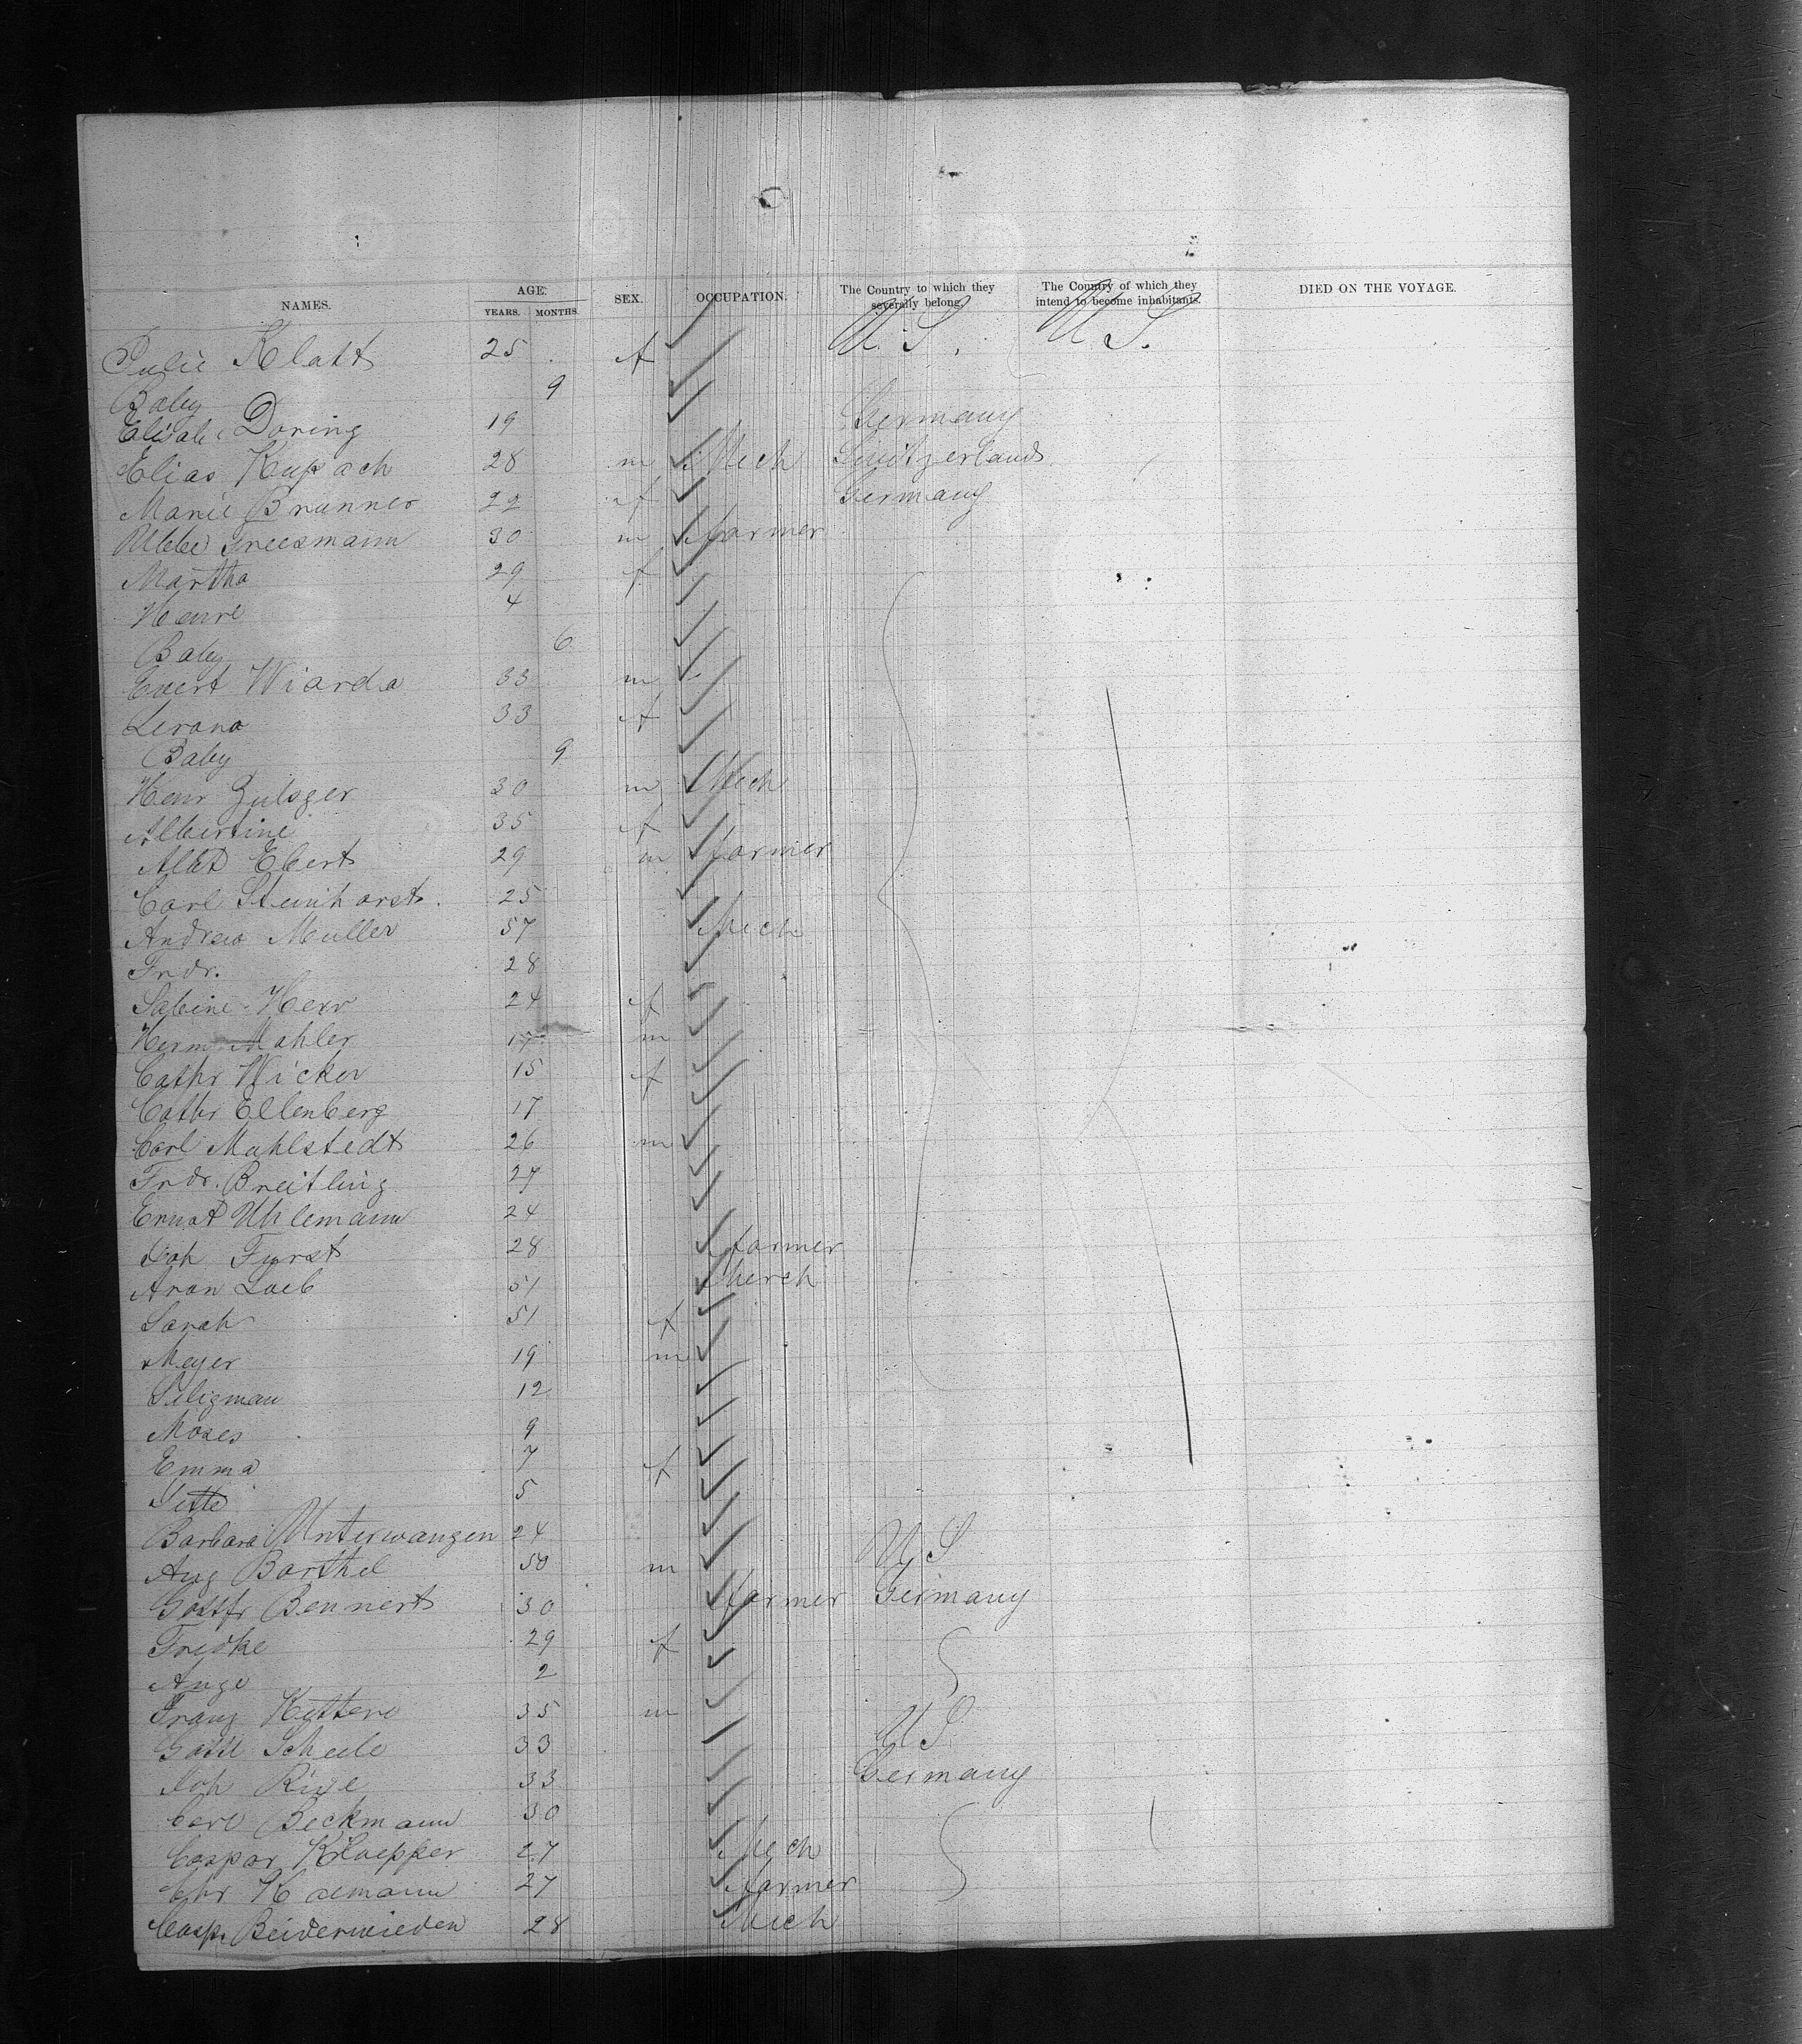 NAMES. AGE. SEX. OCCUPATION. The Country to which they severally belong. The Country of which they intend to become inhabitants. DIED ON THE VOYAGE.
YEARS. MONTHS.
Julie Klatt 25 f U. S. U. S.
Baby 9
Elisab. Doring 19 Germany
Elias Kupach 28 m Mech Switzerland
Marie Brunner 22 f Germany
Ubbe Freesmann 30 m farmer
Martha 29 f
Henre 4
Baby 6
Evert Wiarda 33 m
Lerana 33 f
Baby 9
Henr Zulsger 30 m Mech
Albertine 35 f
Albt Ebert 29 m farmer
Carl Steinhorst. 25
Andreas Muller 57 Mech
Frdr. 28
Sabine Herr 24 f
Herm Mahler 17 m
Cathr Wicker 15 f
Cathr Ellenberg 17
Carl Muhlstedt 26 m
Frdr. Breitling 27
Ernst Uhlemann 24
Joh Furst 28 farmer
Aron Loeb 51 Merch
Sarah 51 f
Meyer 19 m
Seligman 12
Moses 9
Emma 7 f
Jette 5
Barbara Unterwangen 24 U S
Aug Barthel 50 m
Gottfr Bennert 30 farmer Germany
Fredke 29 f
Auge 2
Franz 35 m
Gottl Scheele 33 U S
Joh 33 Germany
Carl Beckmann 30
Caspar Kloepper 27 Mech
Chr 27 farmer
Casp. Beiderwieden 28 Mech